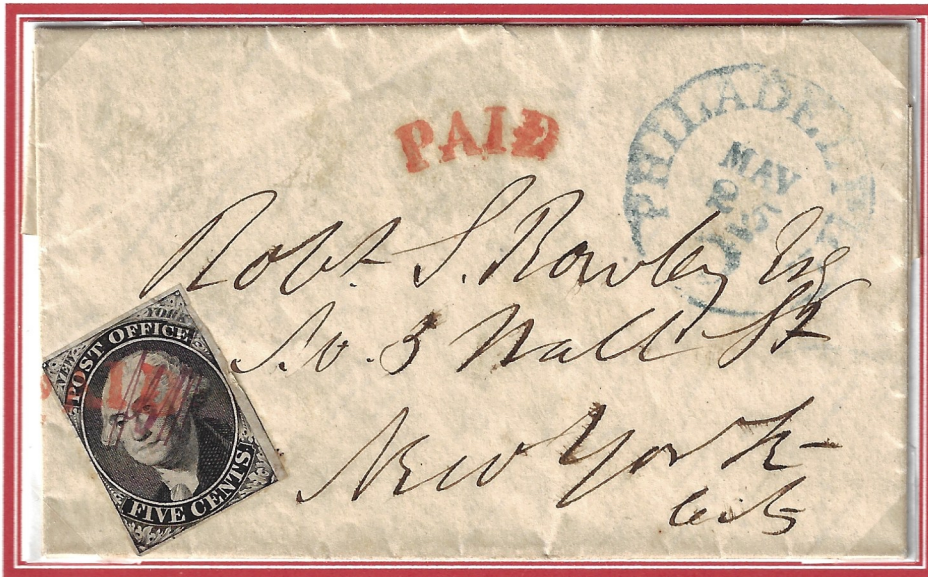 PAID
PHILADELPHIA
MAY
Robt S. Rowley Esq
No. 3 Wall St
New York
City
NEW YORK
POST OFFICE
FIVE CENTS